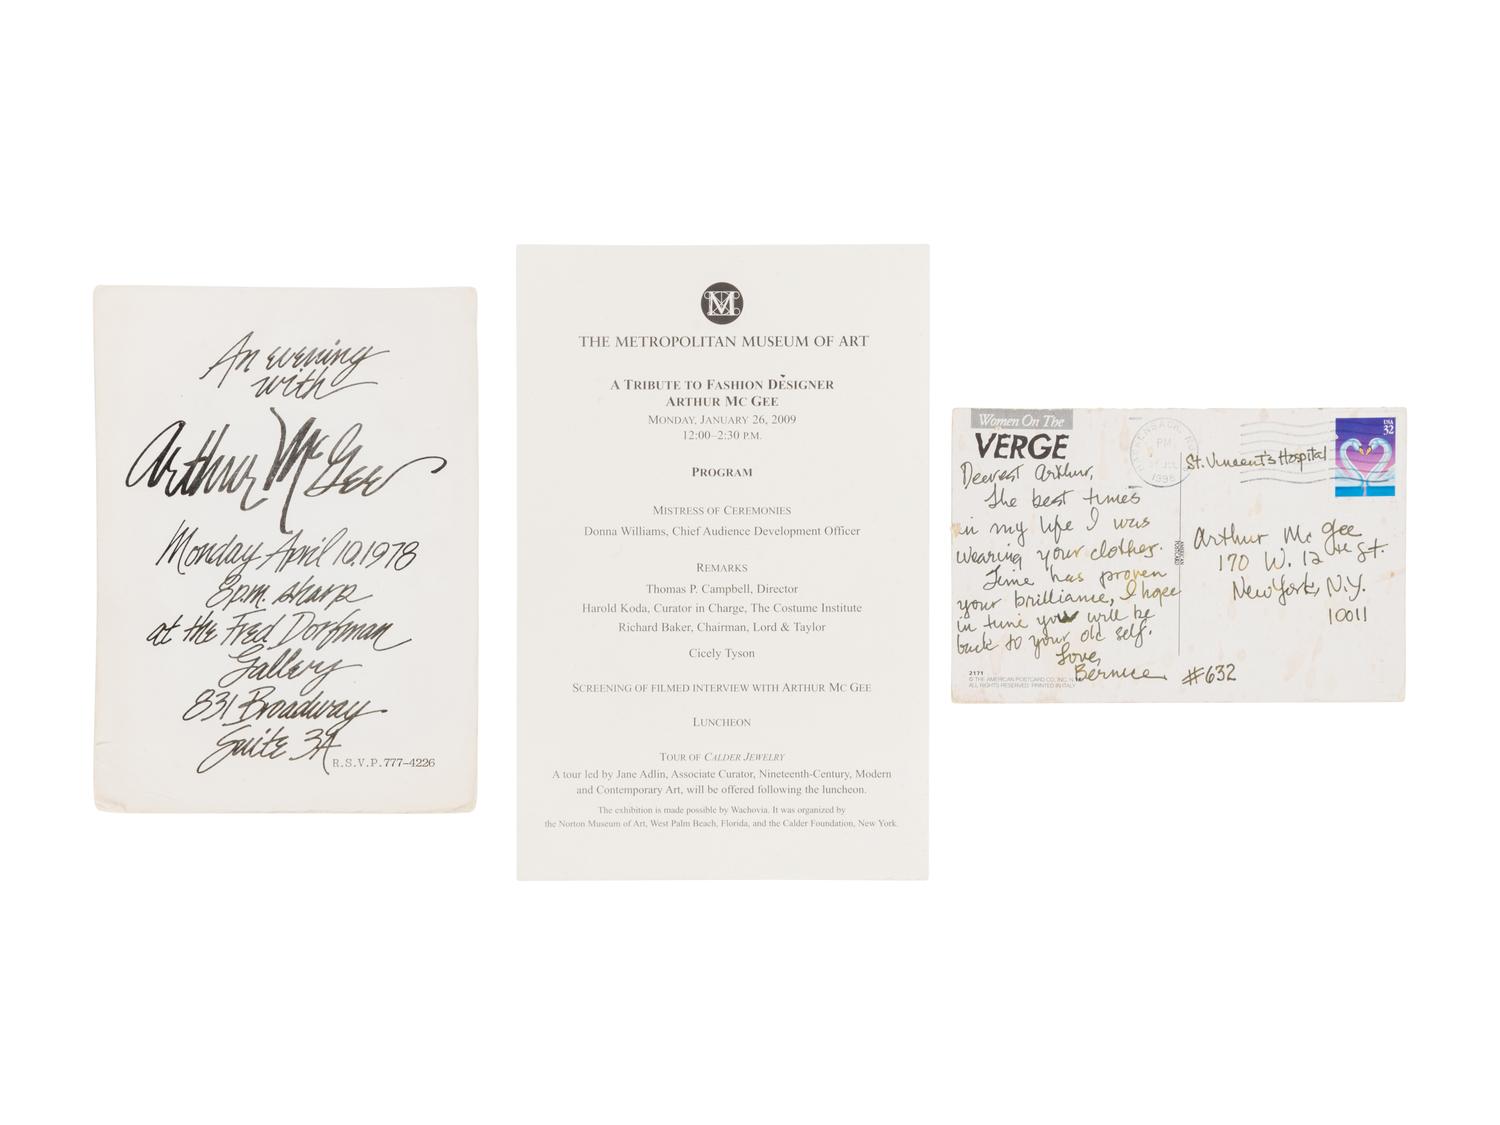 An evening
with
Arthur McGee
Monday April 10.1978
8p.m. sharp
at the Fred Dorfman
Gallery
831 Broadway
Suite 3A
R.S.V.P. 777-4226
M
THE METROPOLITAN MUSEUM OF ART
A TRIBUTE TO FASHION DESIGNER
ARTHUR MC GEE
MONDAY, JANUARY 26, 2009
12:00–2:30 P.M.
PROGRAM
MISTRESS OF CEREMONIES
Donna Williams, Chief Audience Development Officer
REMARKS
Thomas P. Campbell, Director
Harold Koda, Curator in Charge, The Costume Institute
Richard Baker, Chairman, Lord & Taylor
Cicely Tyson
SCREENING OF FILMED INTERVIEW WITH ARTHUR MC GEE
LUNCHEON
TOUR OF CALDER JEWELRY
A tour led by Jane Adlin, Associate Curator, Nineteenth-Century, Modern
and Contemporary Art, will be offered following the luncheon.
The exhibition is made possible by Wachovia. It was organized by
the Norton Museum of Art, West Palm Beach, Florida, and the Calder Foundation, New York.
Women On The
VERGE
Dearest Arthur,
The best times
in my life I was
wearing your clothes.
Time has proven
your brilliance, I hope
in time you will be
back to your old self.
Love,
Bernice
2171
© THE AMERICAN POSTCARD CO., INC. N.Y.
ALL RIGHTS RESERVED. PRINTED IN ITALY
HACKENSACK, N.J.
PM
JUL
USA
32
St. Vincent's Hospital
Arthur Mc Gee
170 W. 12 th St.
New York, N.Y.
10011
#632